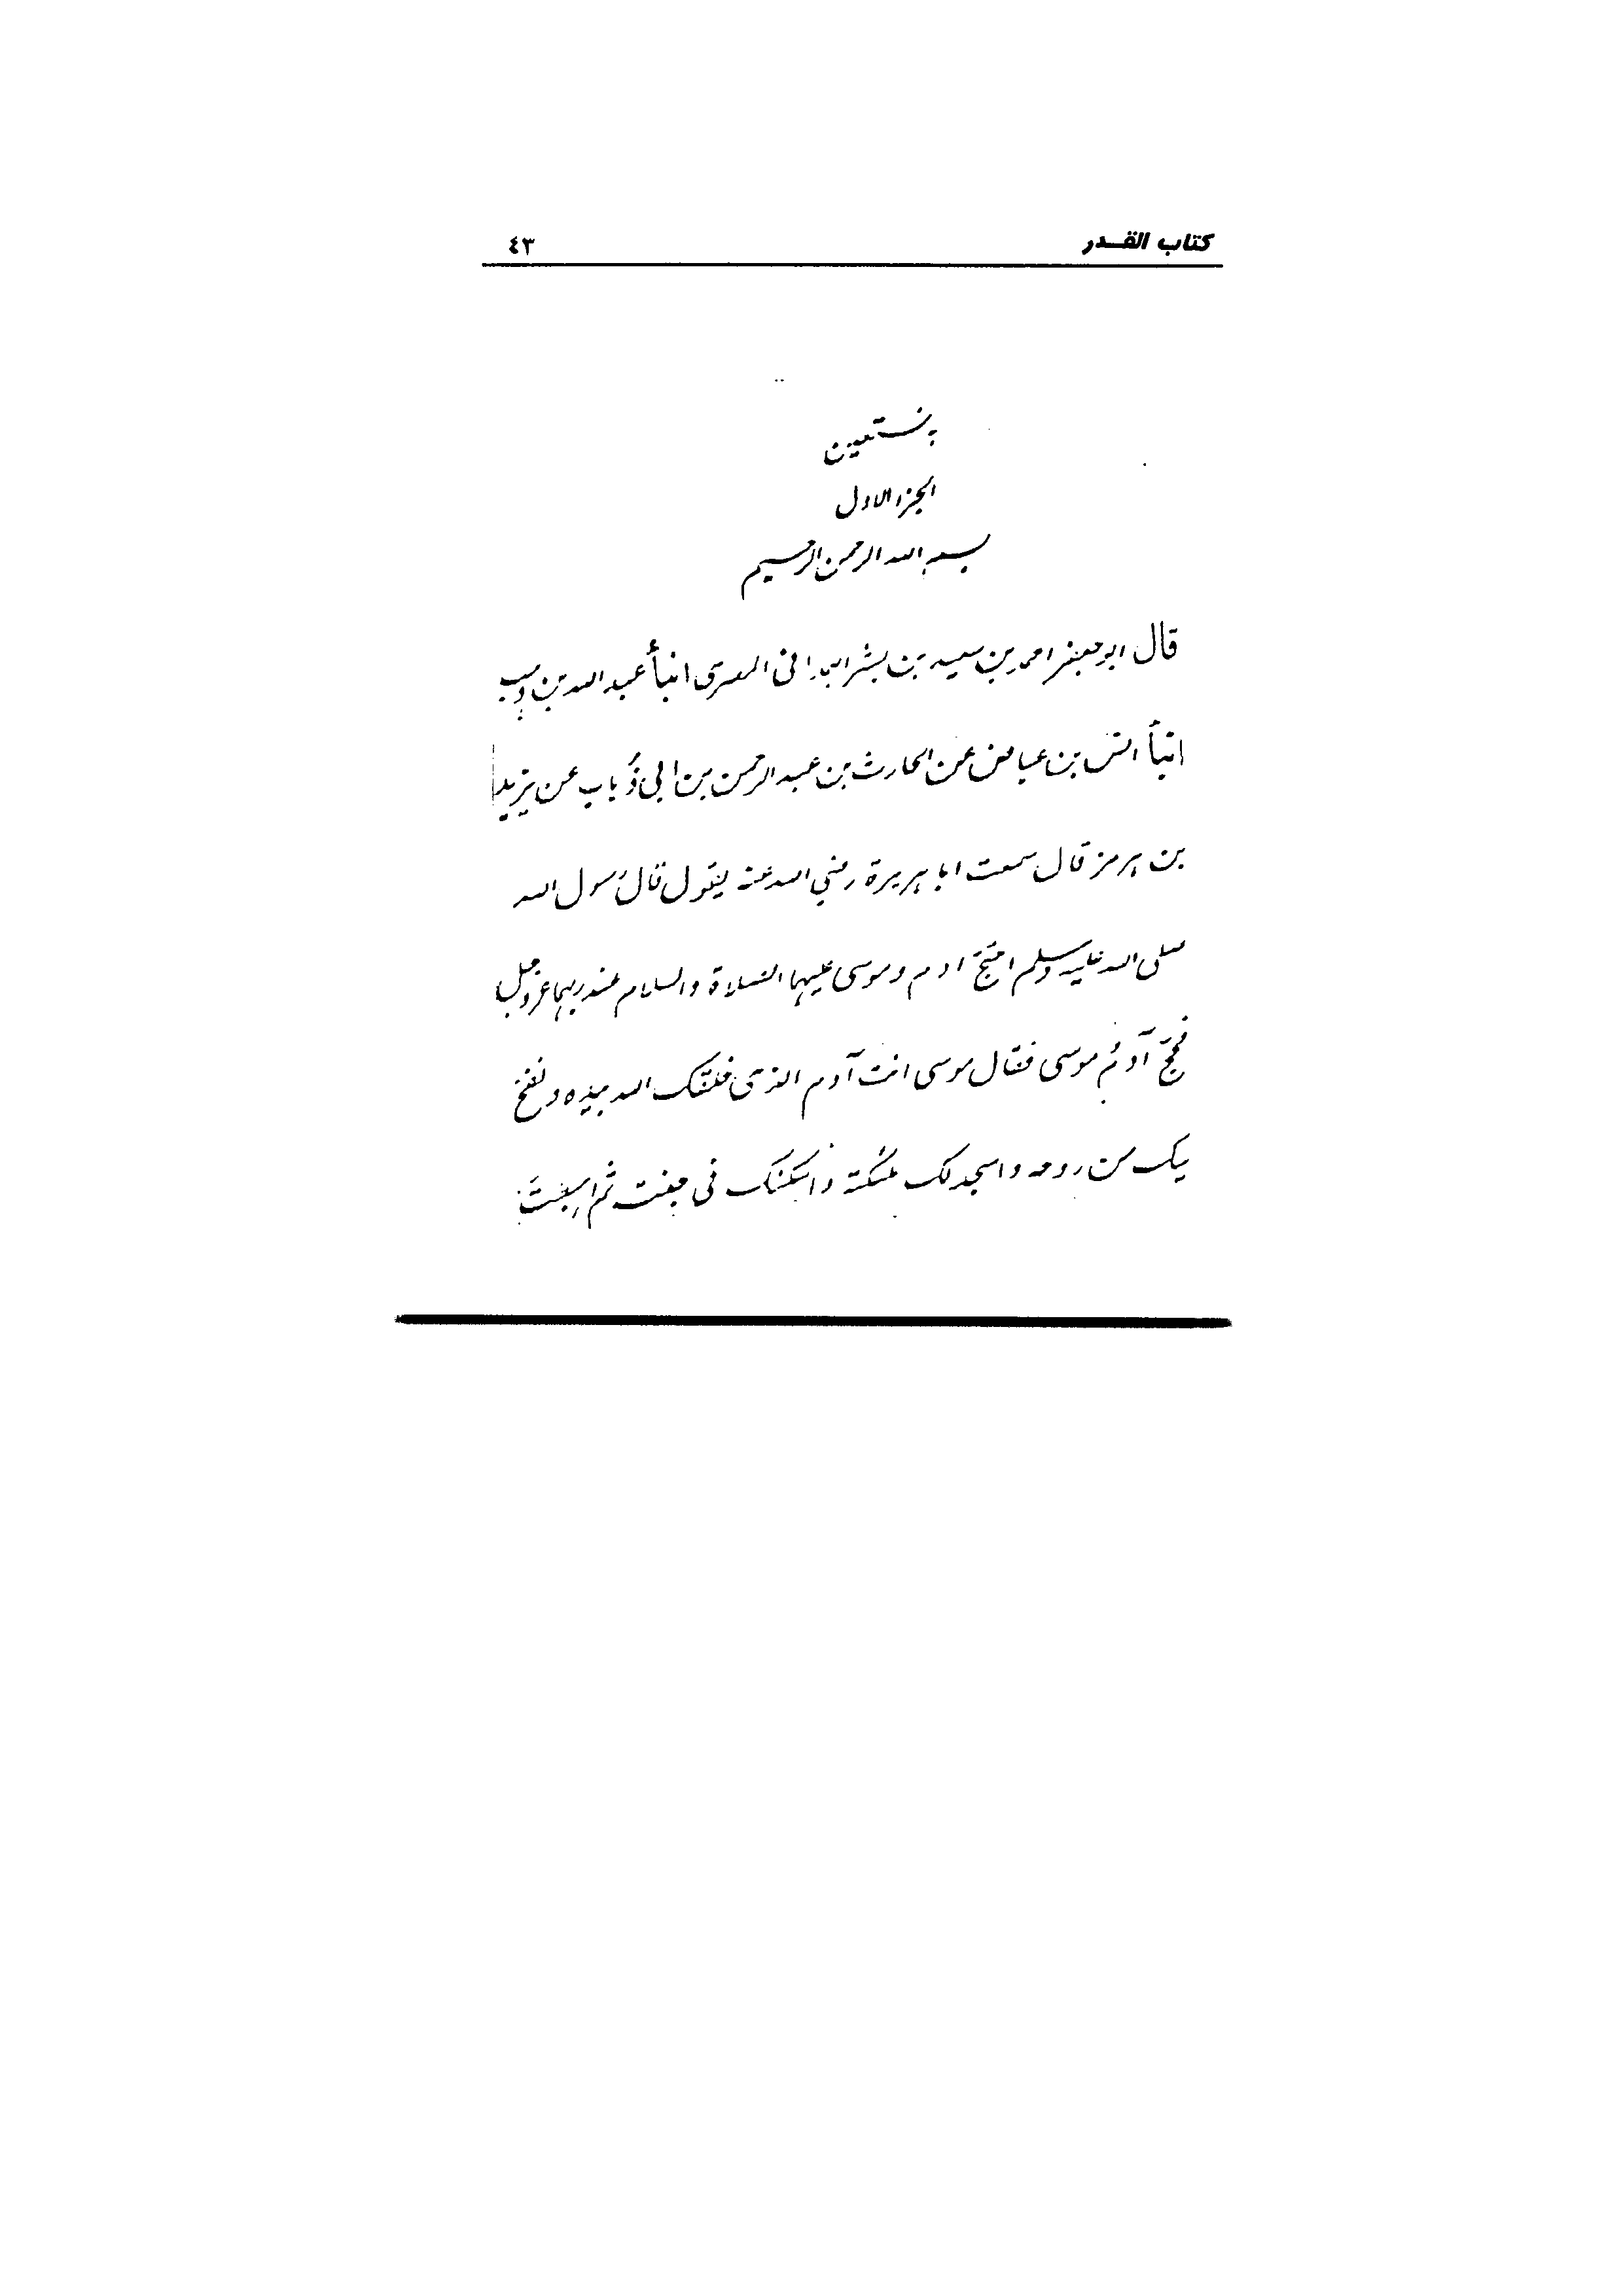 كتاب القــدر ٤٣
به نستعين
الجزء الاول
بسم الله الرحمن الرحيم
قال ابو جعفر احمد بن سعيد بن بشر الهمدانى المصرى انبأ عبد الله بن وهب
انبأ انس بن عياض عن الحارث بن عبد الرحمن بن ابى ذُباب عن يزيد
بن هرمز قال سمعت ابا هريرة رضي الله عنه يقول قال رسول الله
صلى الله عليه وسلم احتَجَّ ادم وموسى عليهما الصلاة والسلام عند ربهما عزوجل
فحجّ آدمُ موسى فقال موسى انت آدم الذى خلقك الله بيده ونفخ
فيك من روحه واسجد لك ملئكته واسكنك فى جنته ثم اهبطتَ